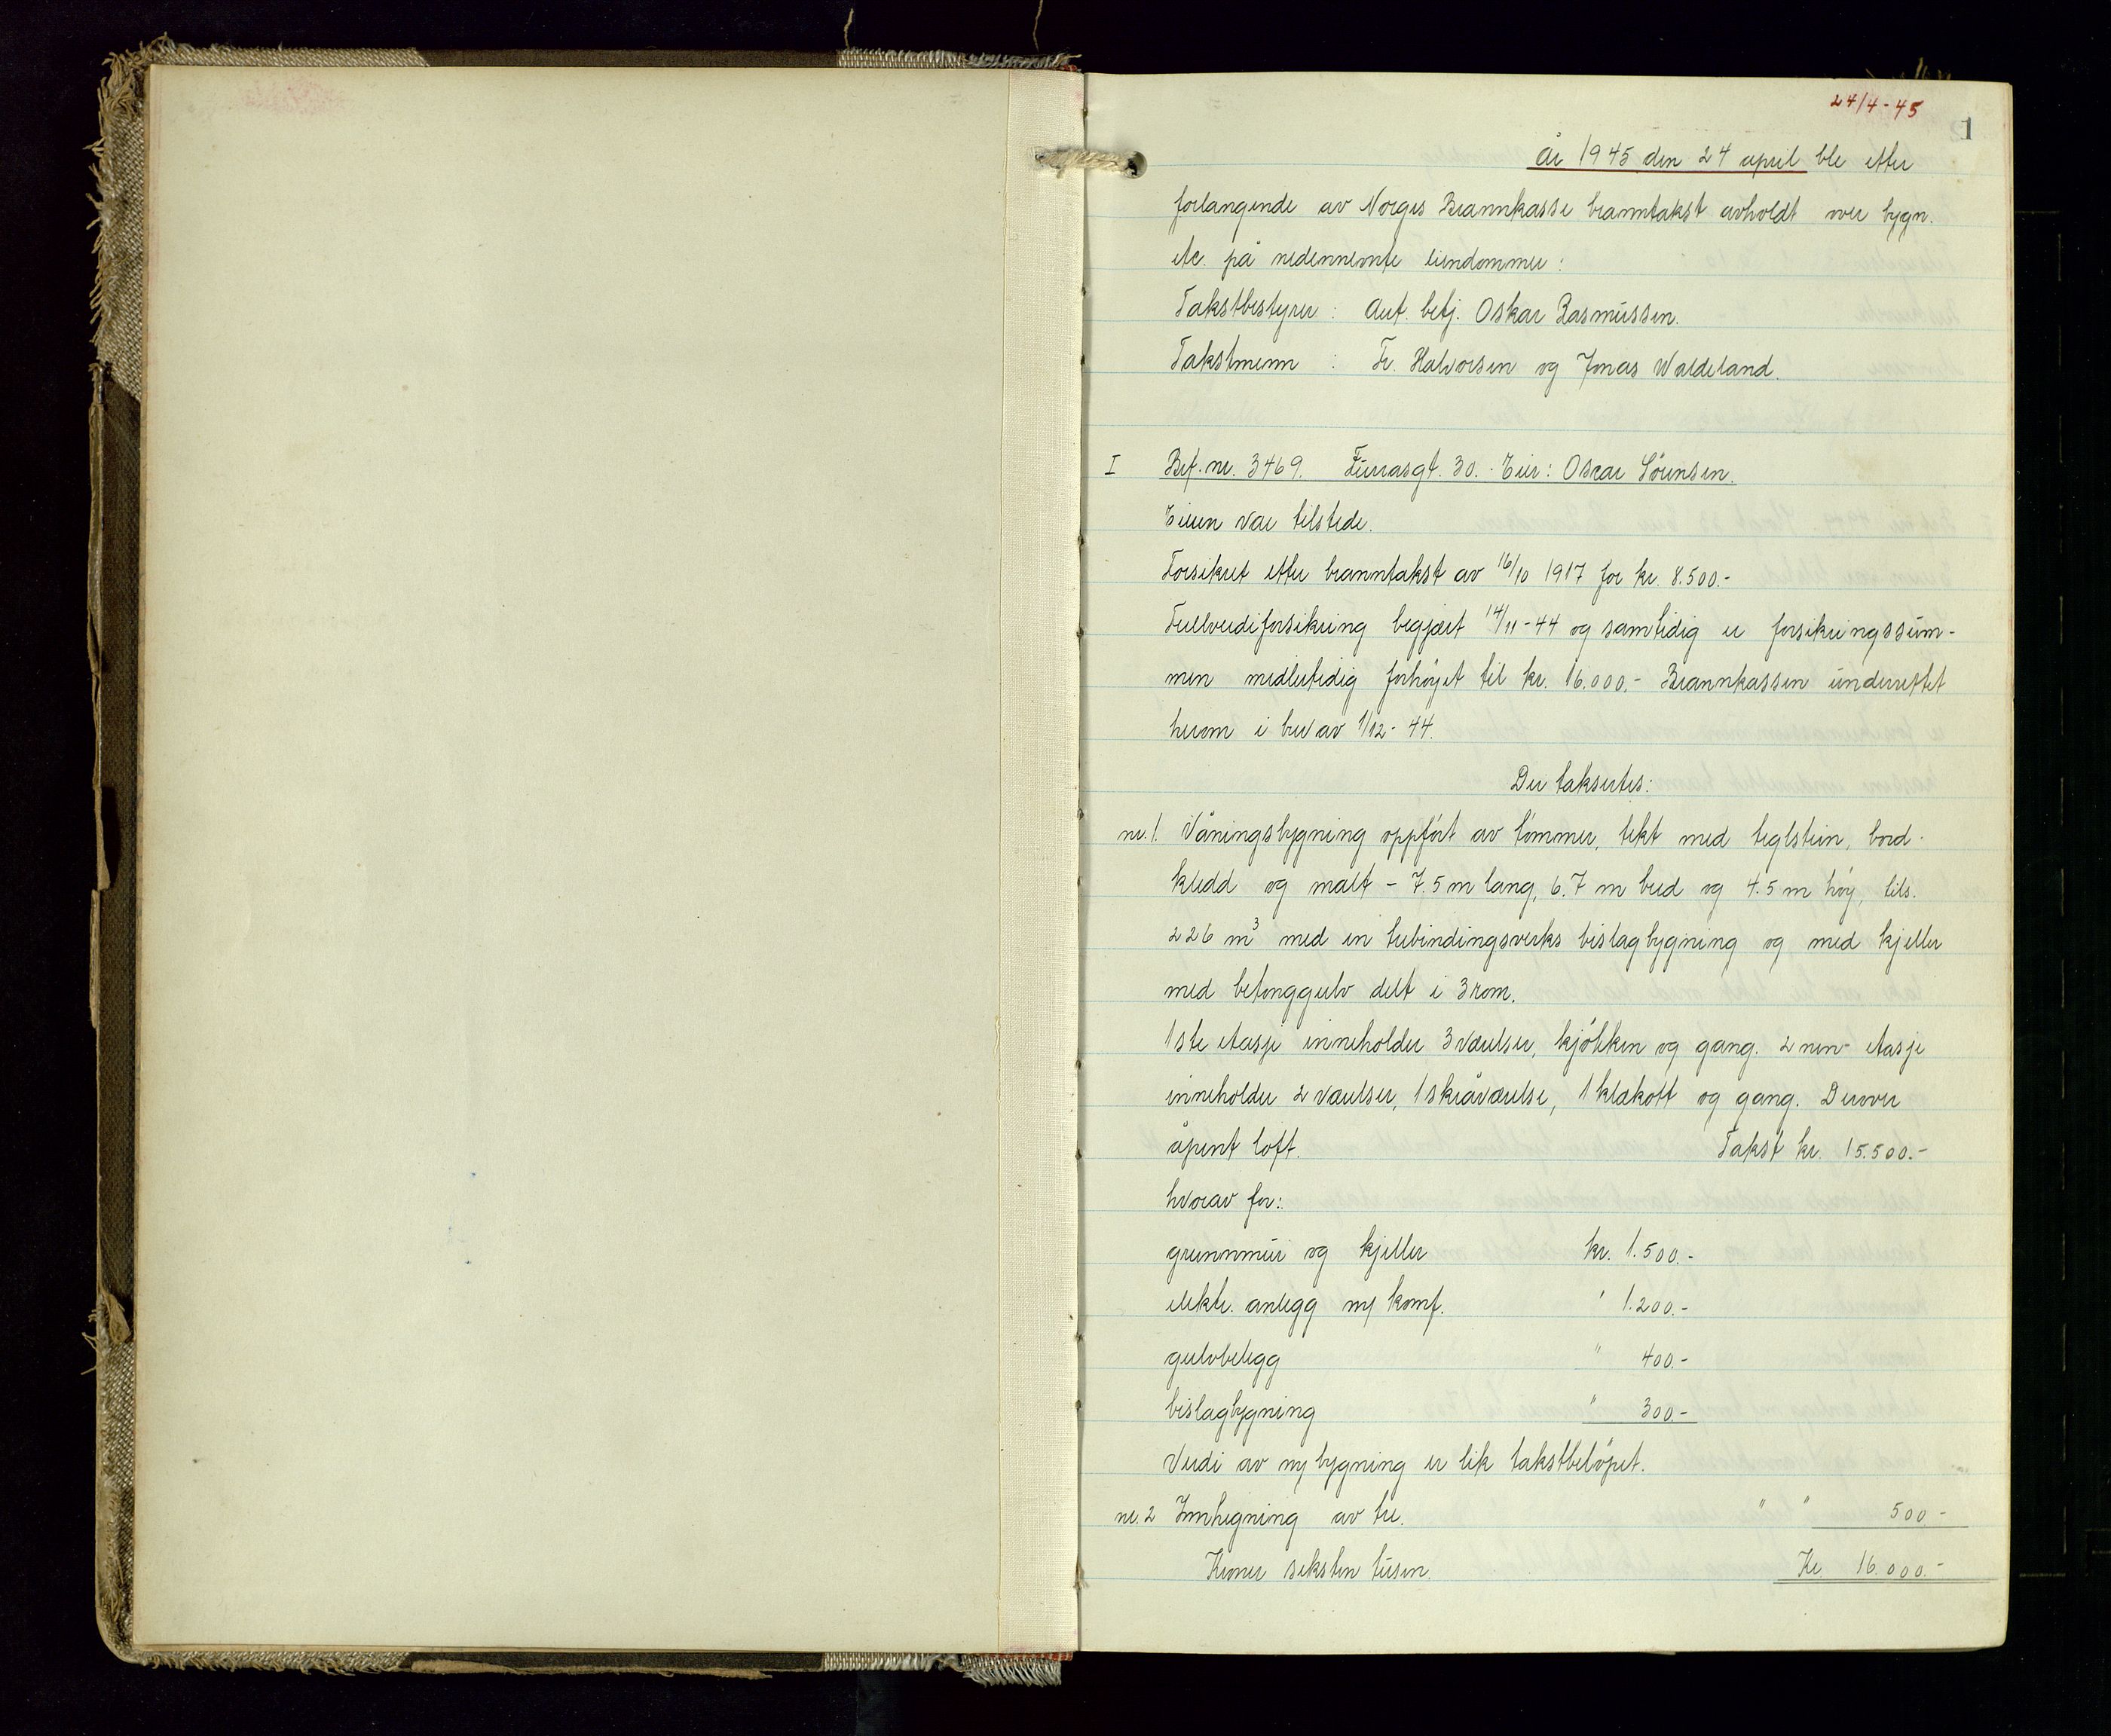 24/4-45
1
År 1945 den 24 april ble etter
forlangende av Norges Brannkasse branntakst avholdt over bygn.
etc. på nedennevnte eiendommer:
Takstbestyrer : Aut. betj. Oskar Rasmussen.
Takstmenn : Fr. Halvorsen og Jonas Waldeland.
I Brf. nr. 3469. Furrasgt. 30. Eier: Oscar Sörensen.
Eieren var tilstede.
Forsikret etter branntakst av 16/10 1917 for kr. 8.500.-
Fullverdiforsikring begjært 14/11-44 og samtidig er forsikringssum-
men midlertidig forhöyet til kr. 16.000.- Brannkassen underrettet
herom i brev av 1/12-44.
Der taksertes:
nr. 1. Våningsbygning oppfört av tömmer, tekt med teglstein, bord-
kledd og malt - 7.5 m lang, 6.7 m bred og 4.5 m höy, tils.
226 m³ med en trebindingsverks bislagbygning og med kjeller
med betonggulv delt i 3 rom.
1ste etasje inneholder 3 værelser, kjökken og gang. 2nen etasje
inneholder 2 værelser, 1 skråværelse, 1 klekott og gang. Derover
åpent loft. Takst kr. 15.500.-
hvorav for:
grunnmur og kjeller kr. 1.500.-
elektr. anlegg m/ komf. " 1.200.-
gulvbelegg " 400.-
bislagbygning " 300.-
Verdi av ny bygning er lik takstbelöpet.
nr. 2 Innhegning av tre. " " 500.-
Kroner seksten tusen. Kr. 16.000.-